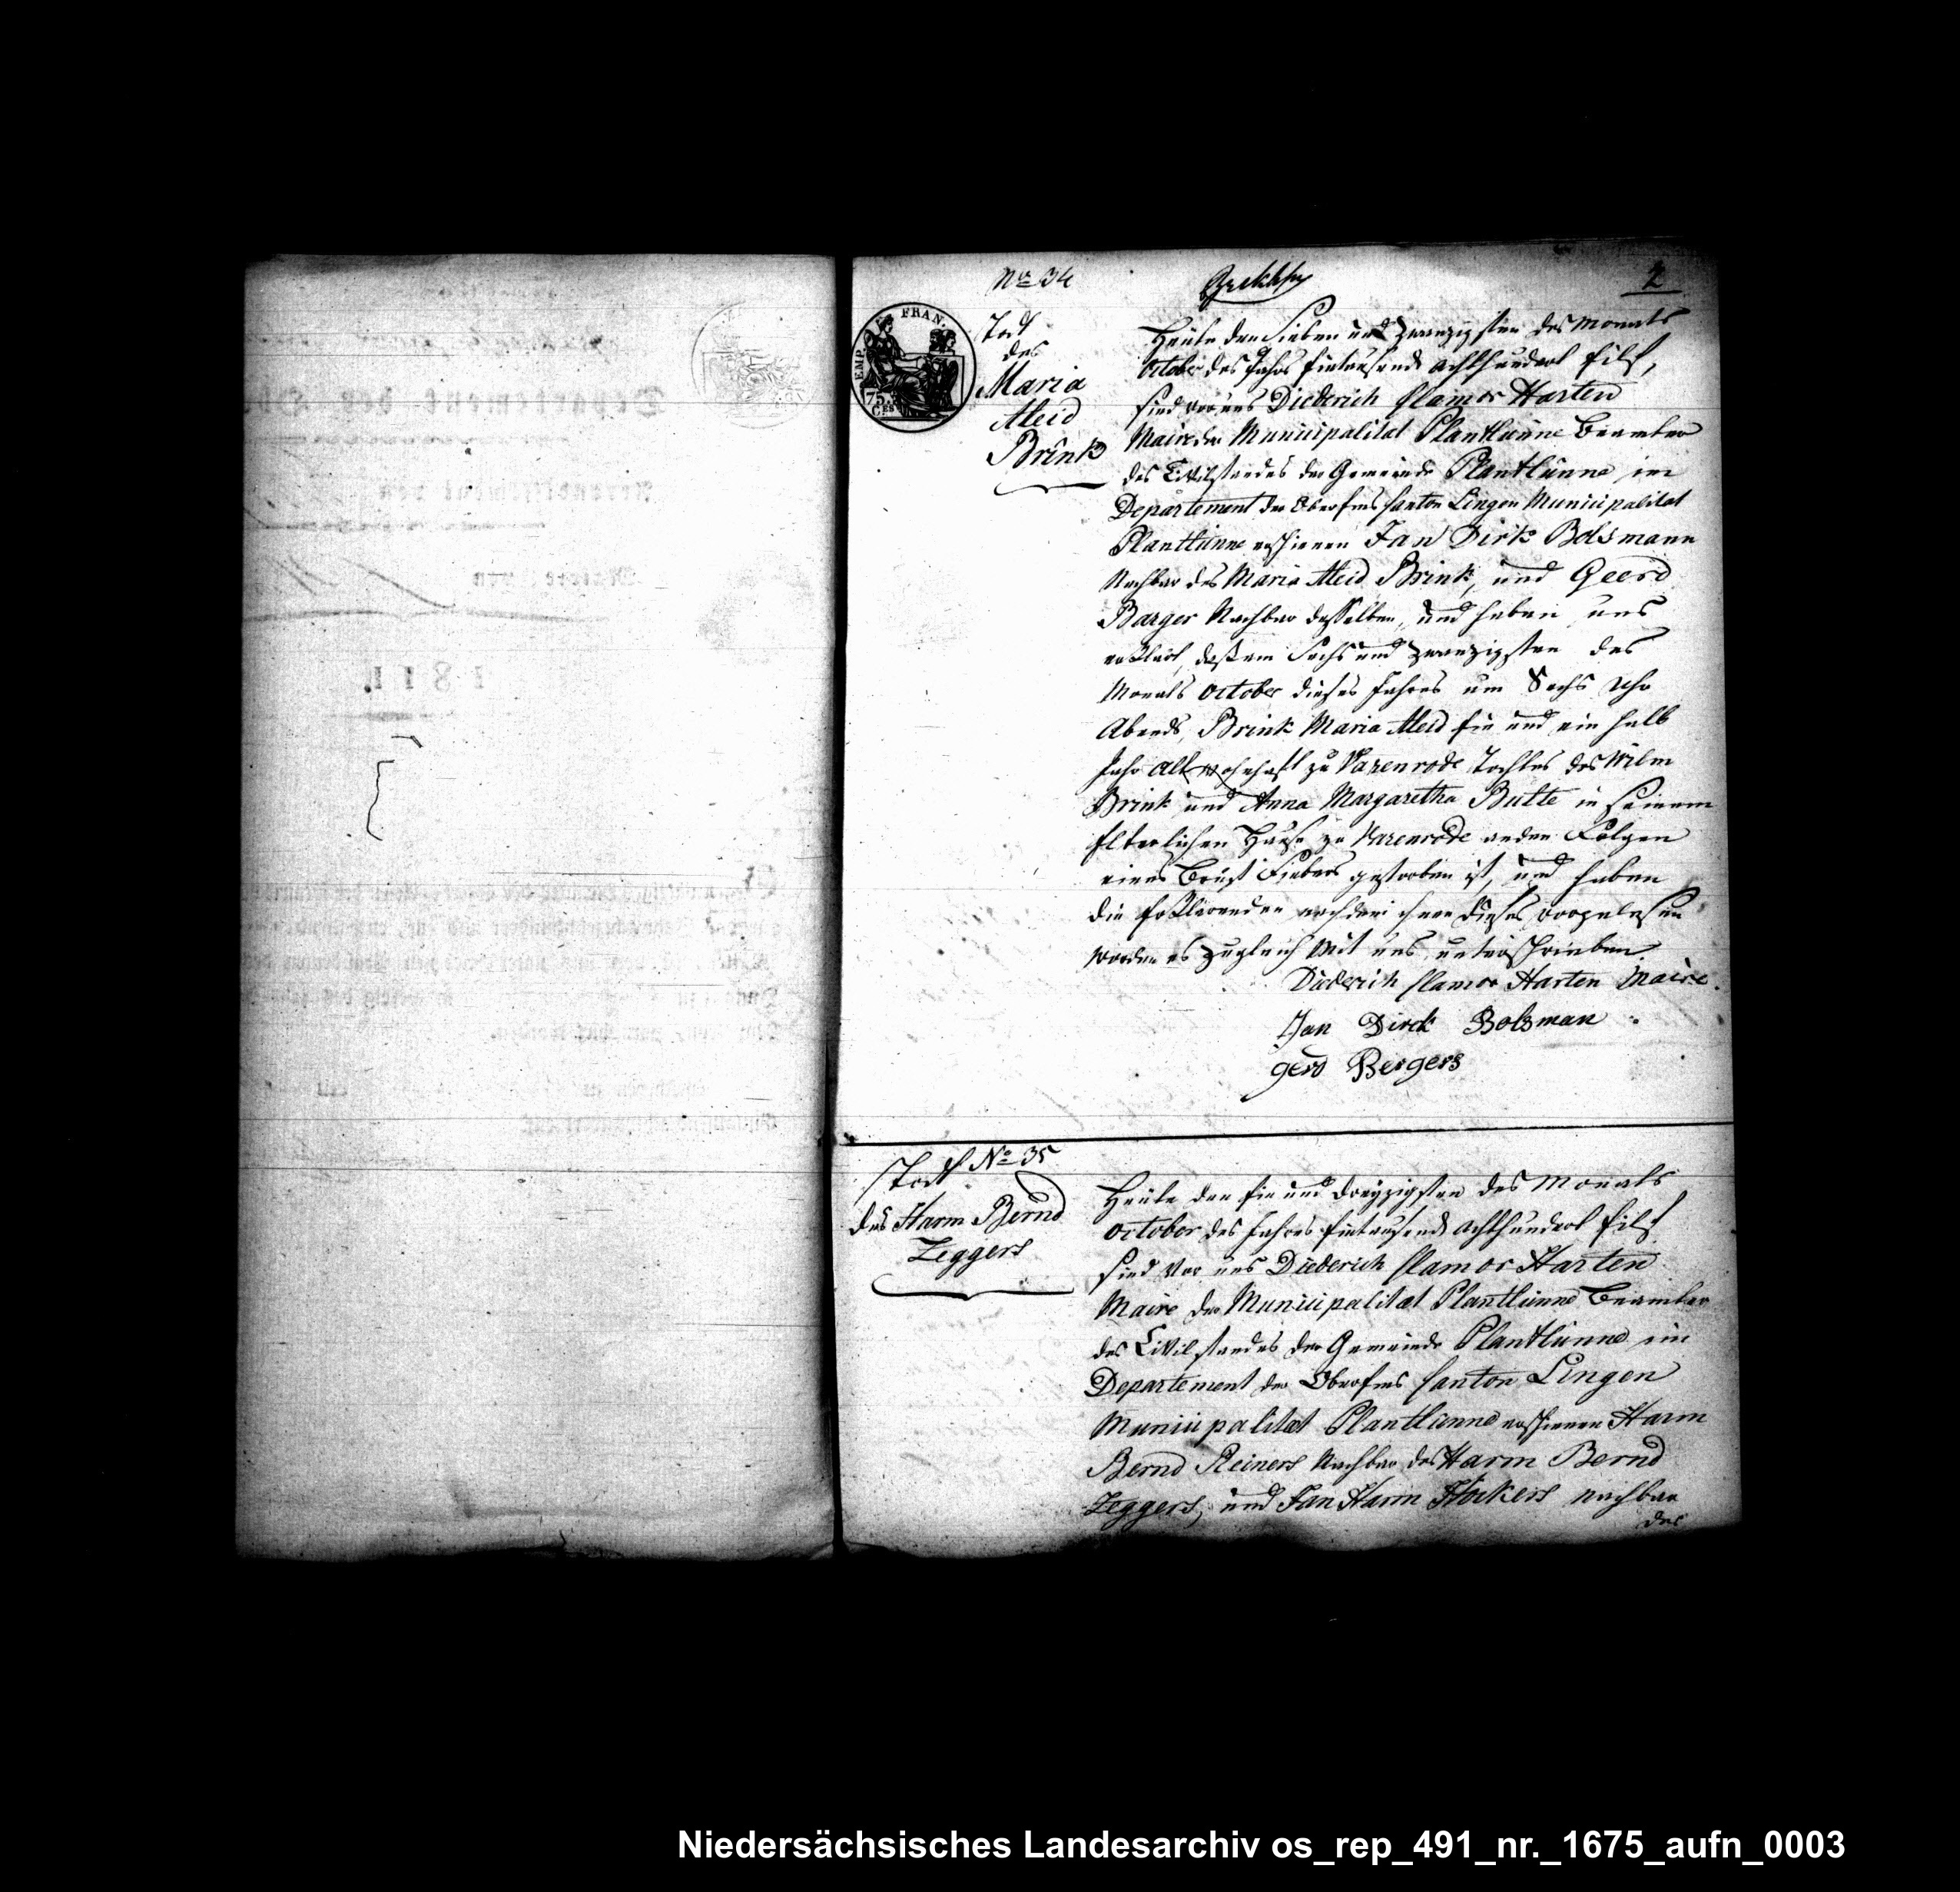 No 34
2
EMP. FRAN.
75.
C.ES
Tod
des
Maria
Aleid
Brink
Heute den Sieben und zwanzigsten des Monats
October des Jahrs Eintausend achthundert Eilf,
sind vor uns Diederich Clamor Harten
Maire der Municipalitat Plantlünne Beamter
des Civilstandes der Gemeinde Plantlünne im
Departement der Oberems Canton Lingen Municipalitat
Plantlünne erschienen Jan Dirk Bolsmann
Nachbar des Maria Aleid Brink, und Geerd
Barger Nachbar desselben, und haben uns
erklärt, daß am Sechs und zwanzigsten des
Monats October dieses Jahres um Sechs Uhr
Abends, Brink Maria Aleid Ein und ein halb
Jahr alt wohnhaft zu Varenrode Tochter des Wilm
Brink und Anna Margaretha Bulte in seinem
Elterlichen Hause zu Varenrode an den Folgen
eines Brust Fiebers gestorben ist, und haben
die Erklärenden nachdem ihnen dieses vorgelesen
worden es zugleich mit uns unterschrieben.
Diederich Clamor Harten Maire.
Jan Dirck Bolsman
gerd Bergers
Tod No 35
des Harm Bernd
Zeggers
Heute den Ein und dreyzigsten des Monats
October des Jahres Eintausend achthundert Eilf
sind vor uns Diederich Clamor Harten
Maire der Municipalitat Plantlünne Beamter
des Civilstandes der Gemeinde Plantlünne im
Departement der Oberems Canton Lingen
Municipalitat Plantlünne erschienen Harm
Bernd Reiners Nachbar des Harm Bernd
Zeggers, und Jan Harm Hökers Nachbar
des
Niedersächsisches Landesarchiv os_rep_491_nr._1675_aufn_0003